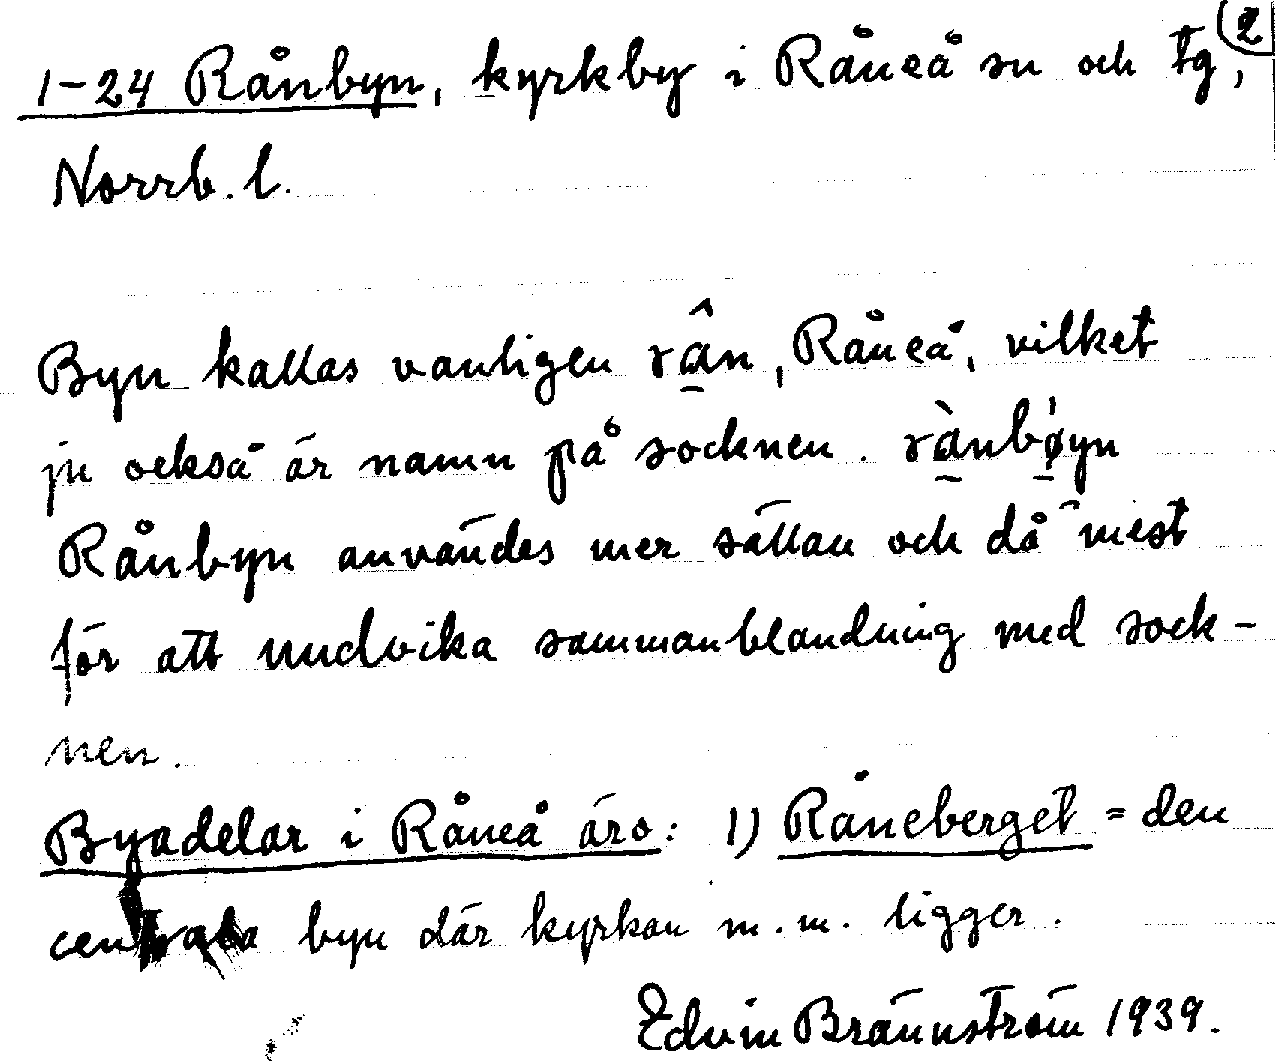 2
1-24 Rånbyn, kyrkby i Råneå sn och tg,
Norrb. l.
Byn kallas vanligen râ̱n, Råneå, vilket
ju också är namn på socknen. rà̱nbǿ̱yn
Rånbyn användes mer sällan och då mest
för att undvika sammanblandning med sock-
nen.
Byadelar i Råneå äro: 1) Råneberget = den
centrala byn där kyrkan m.m. ligger.
Edvin Brännström 1939.